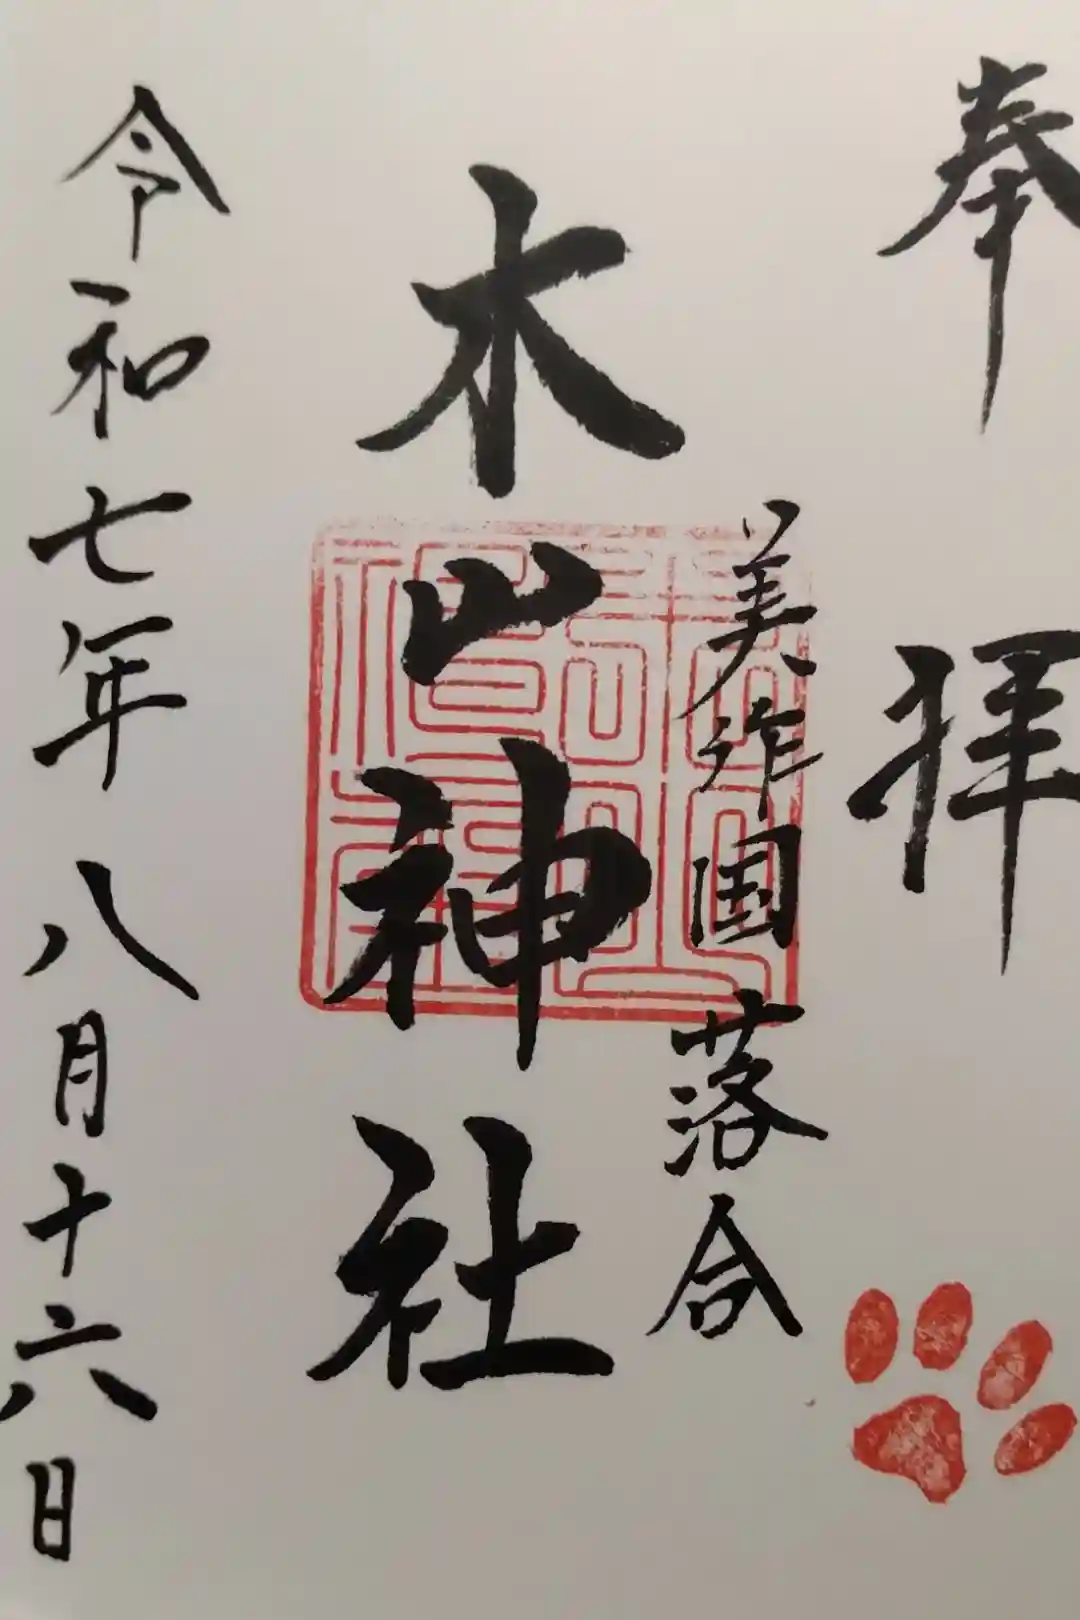 奉拝
美作国 落合
木山神社
令和七年八月十六日